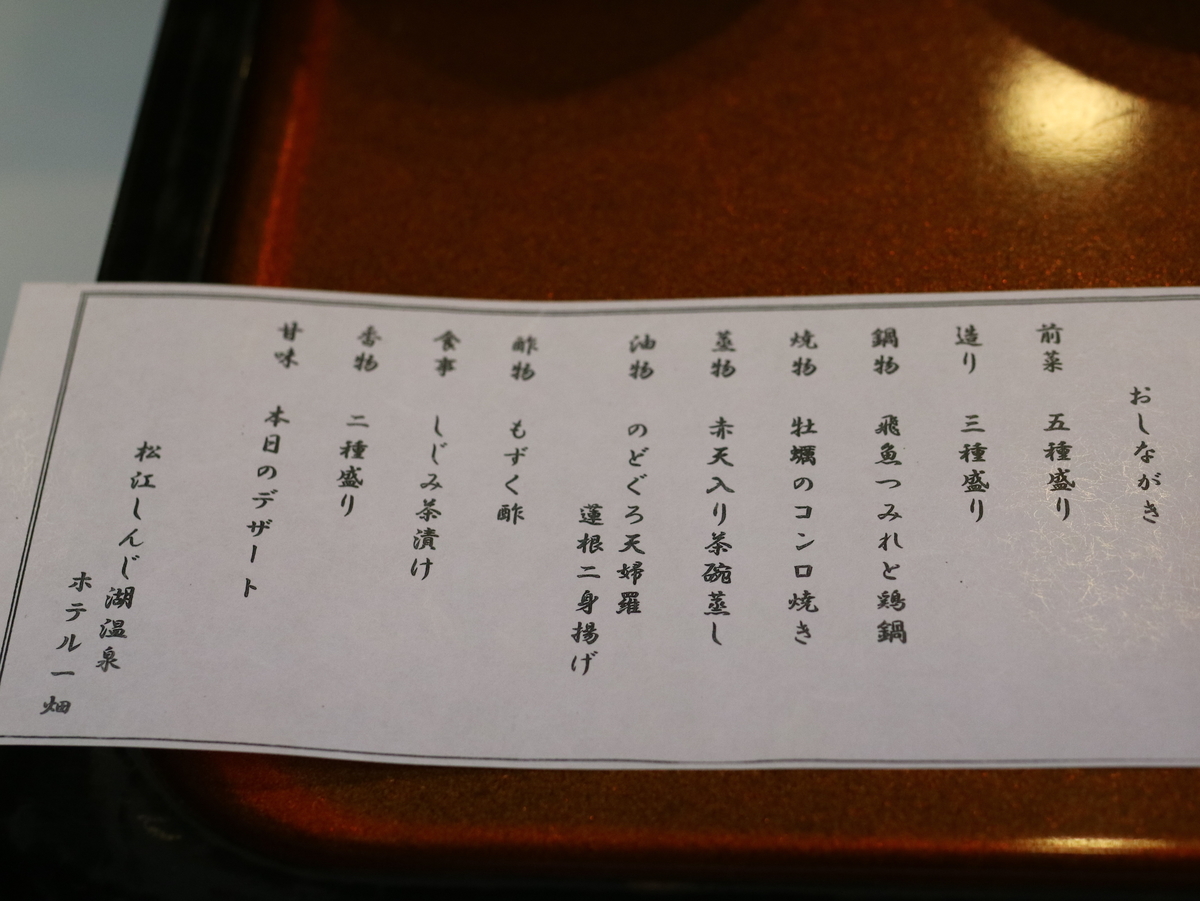 おしながき
前菜 五種盛り
造り 三種盛り
鍋物 飛魚つみれと鶏鍋
焼物 牡蠣のコンロ焼き
蒸物 赤天入り茶碗蒸し
油物 のどぐろ天婦羅
蓮根二身揚げ
酢物 もずく酢
食事 しじみ茶漬け
香物 二種盛り
甘味 本日のデザート
松江しんじ湖温泉
ホテル一畑